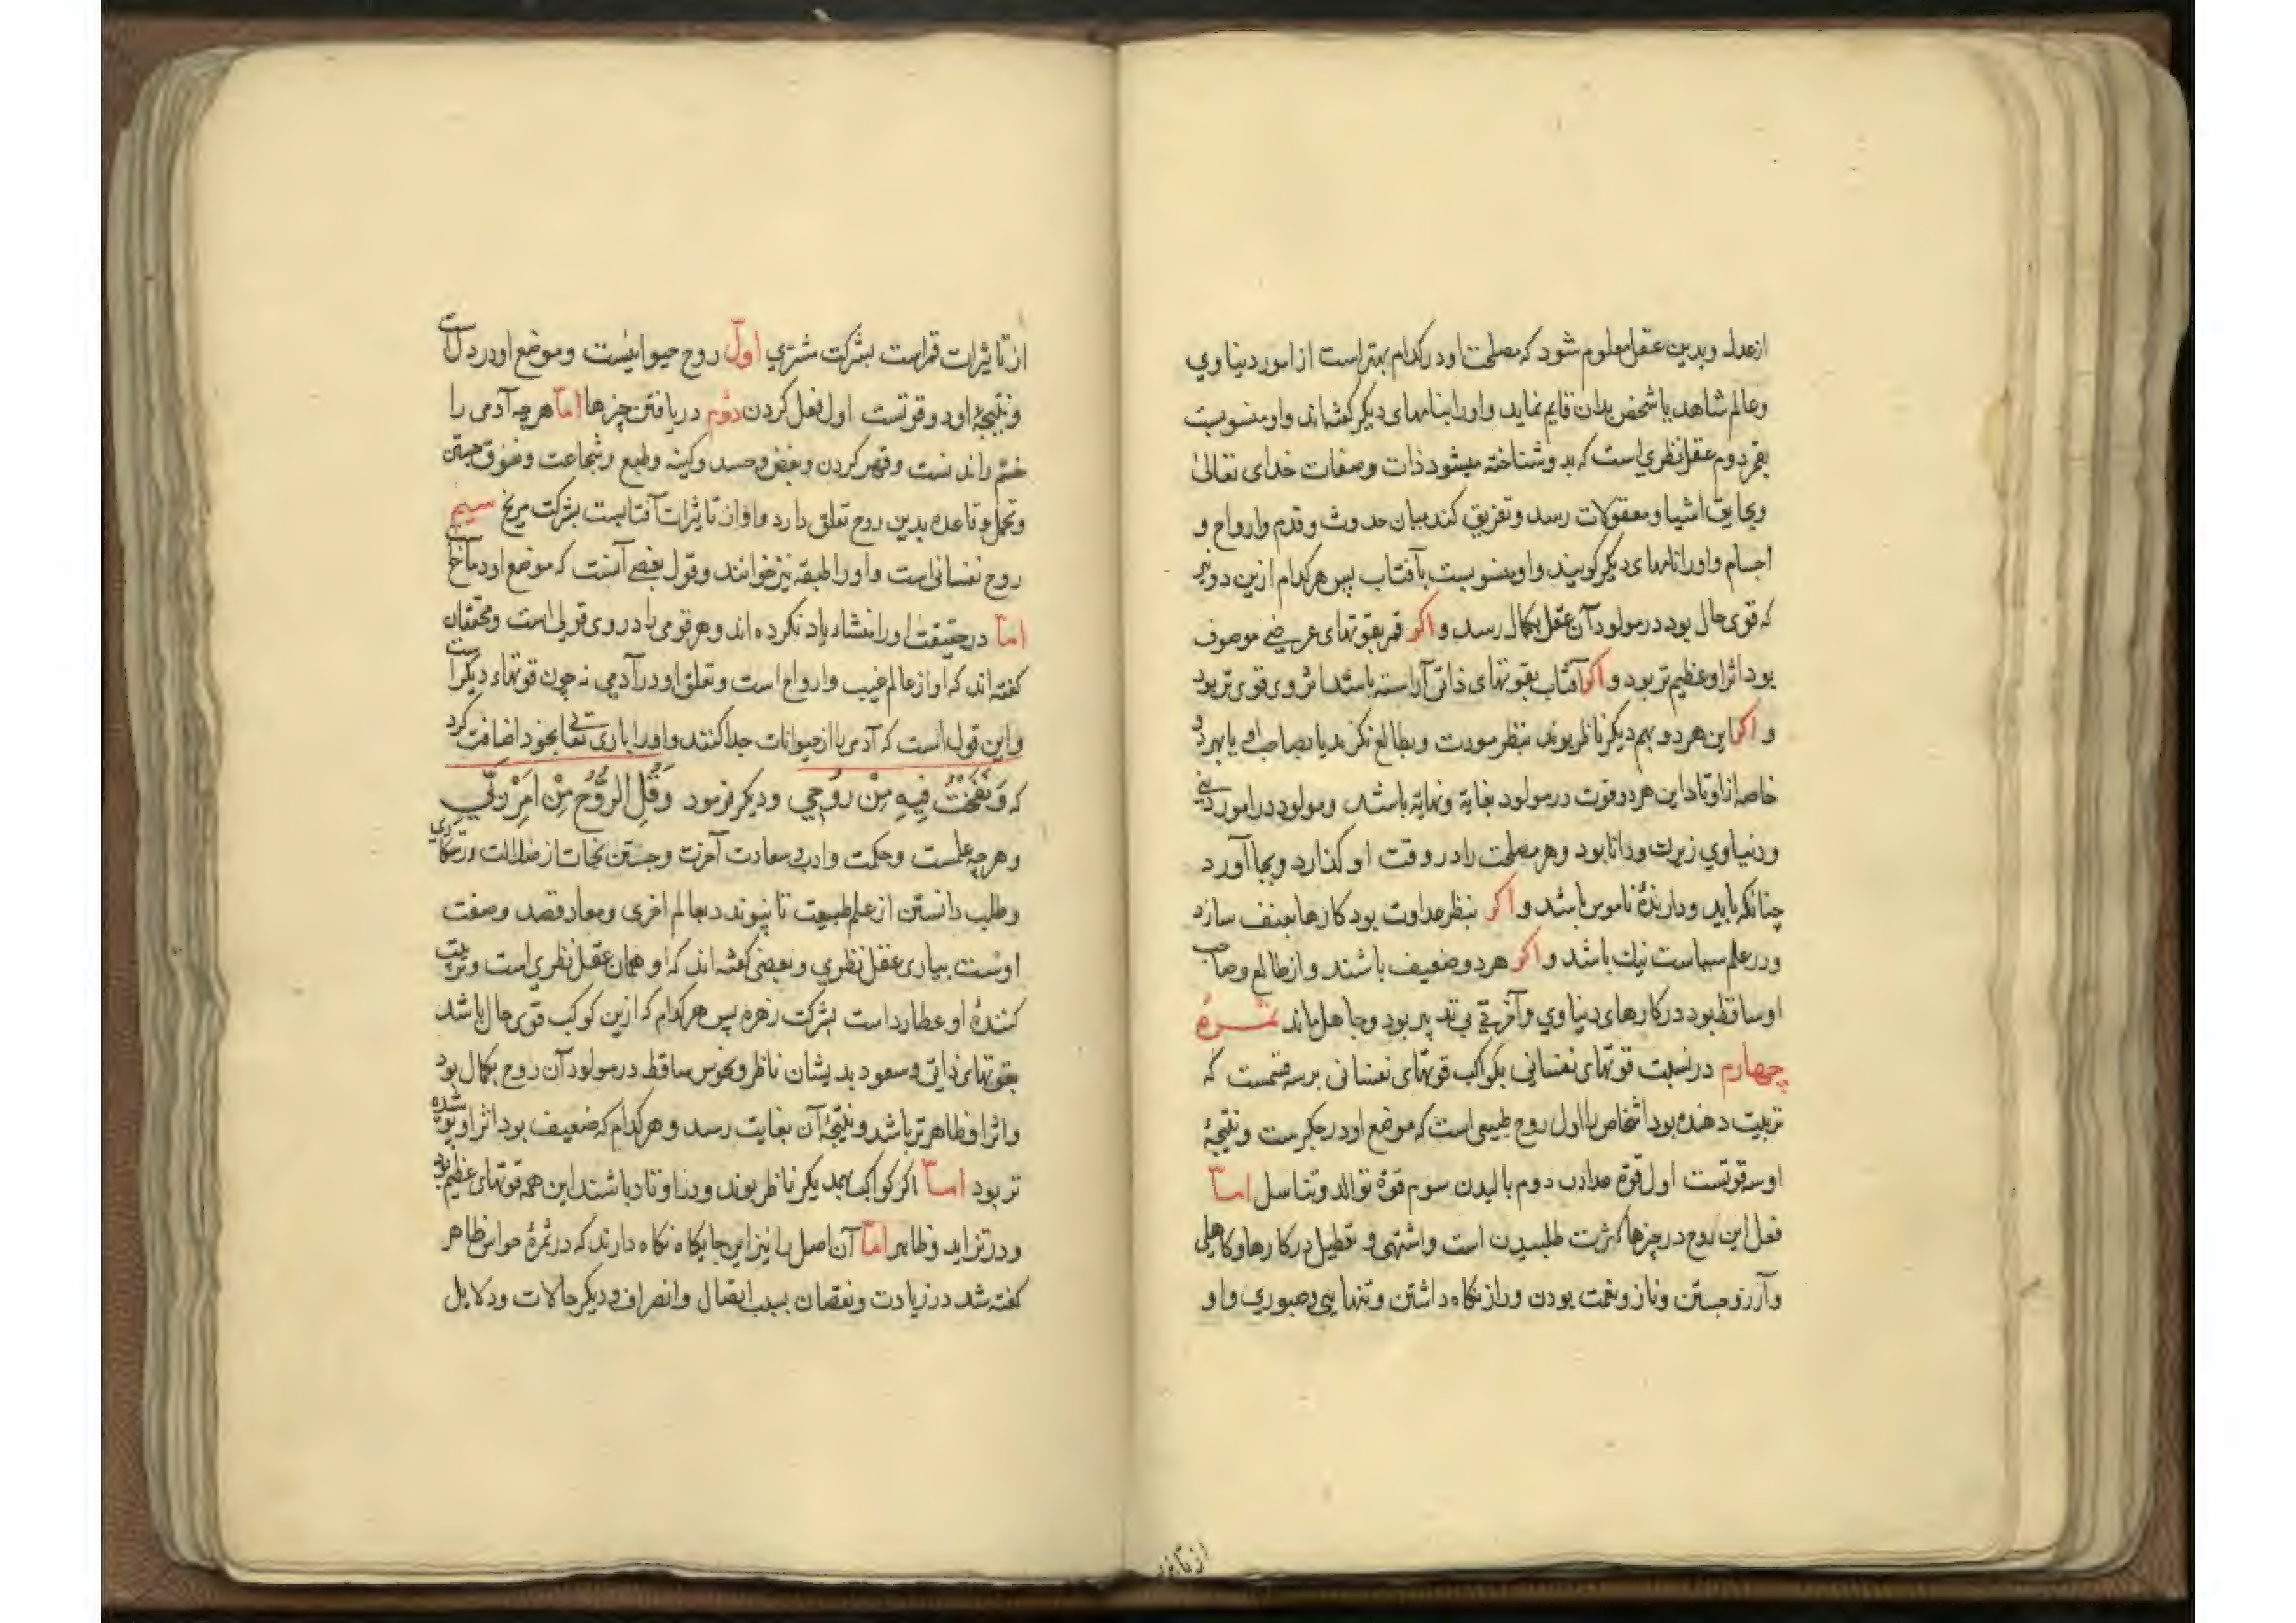 ازعدل وبدین عقل معلوم شود که مصلحت او در کدام بهتر است از امور دنیاوی
وعالم شاهد باشخص بدان قایم نماید واورا بنامهای دیکر کفته‌اند واو منسوبست
بقمر دوم عقل نظری است که بدو شناخته میشود ذات وصفات خدای تعالی
وبحایق اشیا ومعقولات رسد وتفریق کند میان حدوث وقدم وارواح و
اجسام واورا نامهای دیکر کویند واو منسوبست بآفتاب پس هر کدام ازین دو نیر
که قوی حال بود در مولود آن عقل بکمال رسد واکر قمر بقوتهای عرضی موصوف
بود اثر او عظیم تر بود واکر آفتاب بقوتهای ذاتی آراسته باشد اثر وی قوی تر بود
واکر این هر دو بهم دیکر ناظر بوند بنظر مودت وبطالع نکرند یا بصاحب او یا بهر دو
خاصه از اوتاد این هر دو قوت در مولود بغایة ونهایة باشد ومولود در امور دینی
ودنیاوی زیرك ودانا بود وهر مصلحت را در وقت او کذارد وبجا آورد
چنانکه باید ودارندهٔ ناموس باشد واکر بنظر عداوت بود کارها بعنف سازد
ودر علم سیاست نیك باشد واکر هر دو ضعیف باشند واز طالع وصاحب
او ساقط بود در کارهای دنیاوی وآخرتی بی تدبیر بود وجاهل ماند ثمرهٔ
چهارم در نسبت قوتهای نفسانی بکواکب قوتهای نفسانی بر سه قسمست که
تربیت دهنده بود اشخاص را اول روح طبیعی است که موضع او در جکرست ونتیجهٔ
او سه قوتست اول قوة جذب دوم بالیدن سوم قوة توالد وتناسل اما
فعل این روح در چیزها کثرت طلبیدن است واشتهی وتعطیل در کارها وکاهلی
وآرزو جستن وناز ونعمت بودن وراز نکاه داشتن وتنهایی وصبوری واو
از تاثیر
از تاثیرات قمراست بشرکت مشتری اول روح حیوانیست وموضع او در دل است
ونتیجهٔ او دو قوتست اول فعل کردن دوم دریافتن چیزها اما هر چه آدمی را
خشم راندنست وقهر کردن وبغض وحسد وکینه وطمع وشجاعت وتفوق جستن
وتحمل وقاعده بدین روح تعلق دارد واو از تاثیرات آفتابست بشرکت مریخ سیم
روح نفسانی است واورا طبقه نیز خوانند وقول بعضی آنست که موضع او دماغ
اما در حقیقت اورا منشاء یاد نکرده اند وهر قومی را در وی قولی است ومحققان
کفته اند که او از عالم غیب وارواح است وتعلق او در آدمی نه چون قوتهاء دیکر است
واین قول است که آدمی را از حیوانات جدا کنند واورا باری تعالی بخود اضافت کرد
که وَنَفَخْتُ فِیهِ مِنْ رُوحِی ودیکر فرمود وَقُلِ الرُّوحُ مِنْ اَمْرِ رَبِّی
وهر چه علمست وحکمت وادب وسعادت آخرت وجستن نجات از ضلالت ورستکاری
وطلب دانستن از علم طبیعت تا پیوندد بعالم اخری ومعاد قصد وصفت
اوست بیاری عقل نظری وبعضی کفته اند که او همان عقل نظری است وتربیت
کنندهٔ او عطارد است بشرکت زهره پس هر کدام که ازین کوکب قوی حال باشد
بقوتهای ذاتی وسعود بدیشان ناظر ونحوس ساقط در مولود آن روح بکمال بود
واثر او ظاهر تر باشد ونتیجهٔ آن بغایت رسد وهر کدام که ضعیف بود اثر او پوشیده
تر بود اما اکر کواکب بهمدیکر ناظر بوند ودر اوتاد باشند این همه قوتهای عظیم بود
ودر تزاید وظاهر اما آن اصل را نیز این جایکاه نکاه دارند که در ثمرهٔ حواس ظاهر
کفته شد در زیادت ونقصان بسبب اتصال وانصراف ودیکر حالات ودلایل